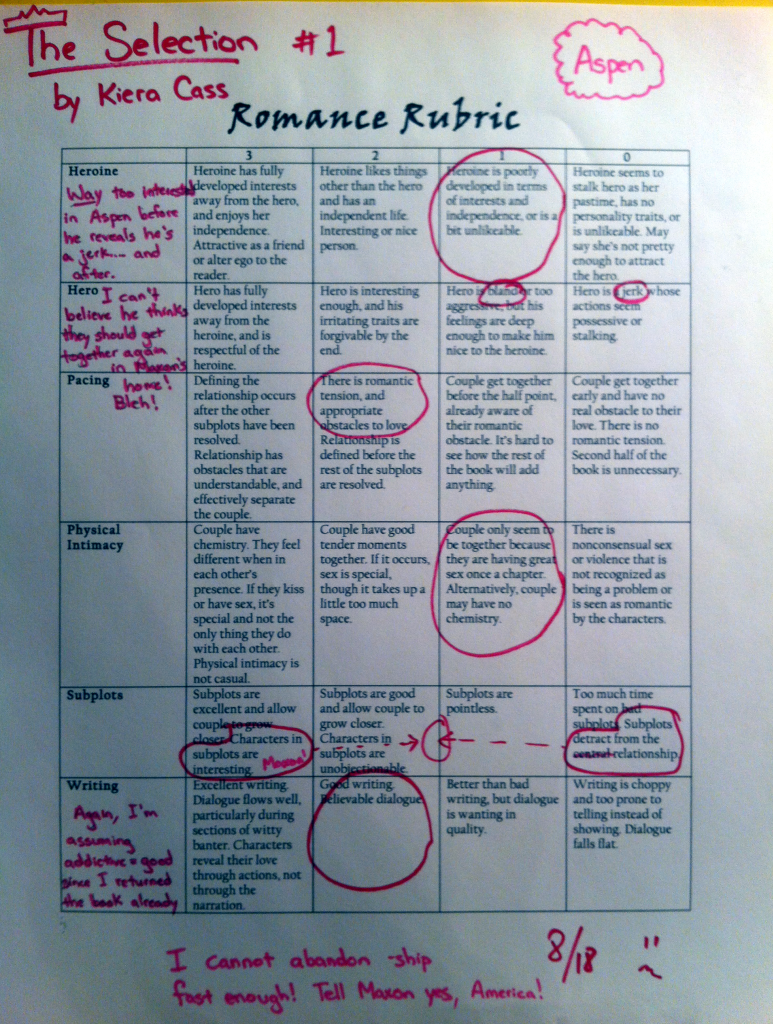 The Selection #1
Aspen
by Kiera Cass
Romance Rubric
3 2 1 0
Heroine
Way too interested
in Aspen before
he reveals he's
a jerk.... and
after.
Heroine has fully
developed interests
away from the hero,
and enjoys her
independence.
Attractive as a friend
or alter ego to the
reader.
Heroine likes things
other than the hero
and has an
independent life.
Interesting or nice
person.
Heroine is poorly
developed in terms
of interests and
independence, or is a
bit unlikeable.
Heroine seems to
stalk hero as her
pastime, has no
personality traits, or
is unlikeable. May
say she's not pretty
enough to attract
the hero.
Hero
I can't
believe he thinks
they should get
together again
in Maxon's
home!
Bleh!
Hero has fully
developed interests
away from the
heroine, and is
respectful of the
heroine.
Hero is interesting
enough, and his
irritating traits are
forgivable by the
end.
Hero is bland or too
aggressive, but his
feelings are deep
enough to make him
nice to the heroine.
Hero is a jerk whose
actions seem
possessive or
stalking.
Pacing
Defining the
relationship occurs
after the other
subplots have been
resolved.
Relationship has
obstacles that are
understandable, and
effectively separate
the couple.
There is romantic
tension, and
appropriate
obstacles to love.
Relationship is
defined before the
rest of the subplots
are resolved.
Couple get together
before the half point,
already aware of
their romantic
obstacle. It's hard to
see how the rest of
the book will add
anything.
Couple get together
early and have no
real obstacle to their
love. There is no
romantic tension.
Second half of the
book is unnecessary.
Physical
Intimacy
Couple have
chemistry. They feel
different when in
each other's
presence. If they kiss
or have sex, it's
special and not the
only thing they do
with each other.
Physical intimacy is
not casual.
Couple have good
tender moments
together. If it occurs,
sex is special,
though it takes up a
little too much
space.
Couple only seem to
be together because
they are having great
sex once a chapter.
Alternatively, couple
may have no
chemistry.
There is
nonconsensual sex
or violence that is
not recognized as
being a problem or
is seen as romantic
by the characters.
Subplots
Subplots are
excellent and allow
couple to grow
closer. Characters in
subplots are
interesting. Maxon!
Subplots are good
and allow couple to
grow closer.
Characters in
subplots are
unobjectionable.
Subplots are
pointless.
Too much time
spent on bad
subplots. Subplots
detract from the
central relationship.
Writing
Again, I'm
assuming
addictive = good
since I returned
the book already
Excellent writing.
Dialogue flows well,
particularly during
sections of witty
banter. Characters
reveal their love
through actions, not
through the
narration.
Good writing.
Believable dialogue.
Better than bad
writing, but dialogue
is wanting in
quality.
Writing is choppy
and too prone to
telling instead of
showing. Dialogue
falls flat.
I cannot abandon -ship
fast enough! Tell Maxon yes, America!
8/18